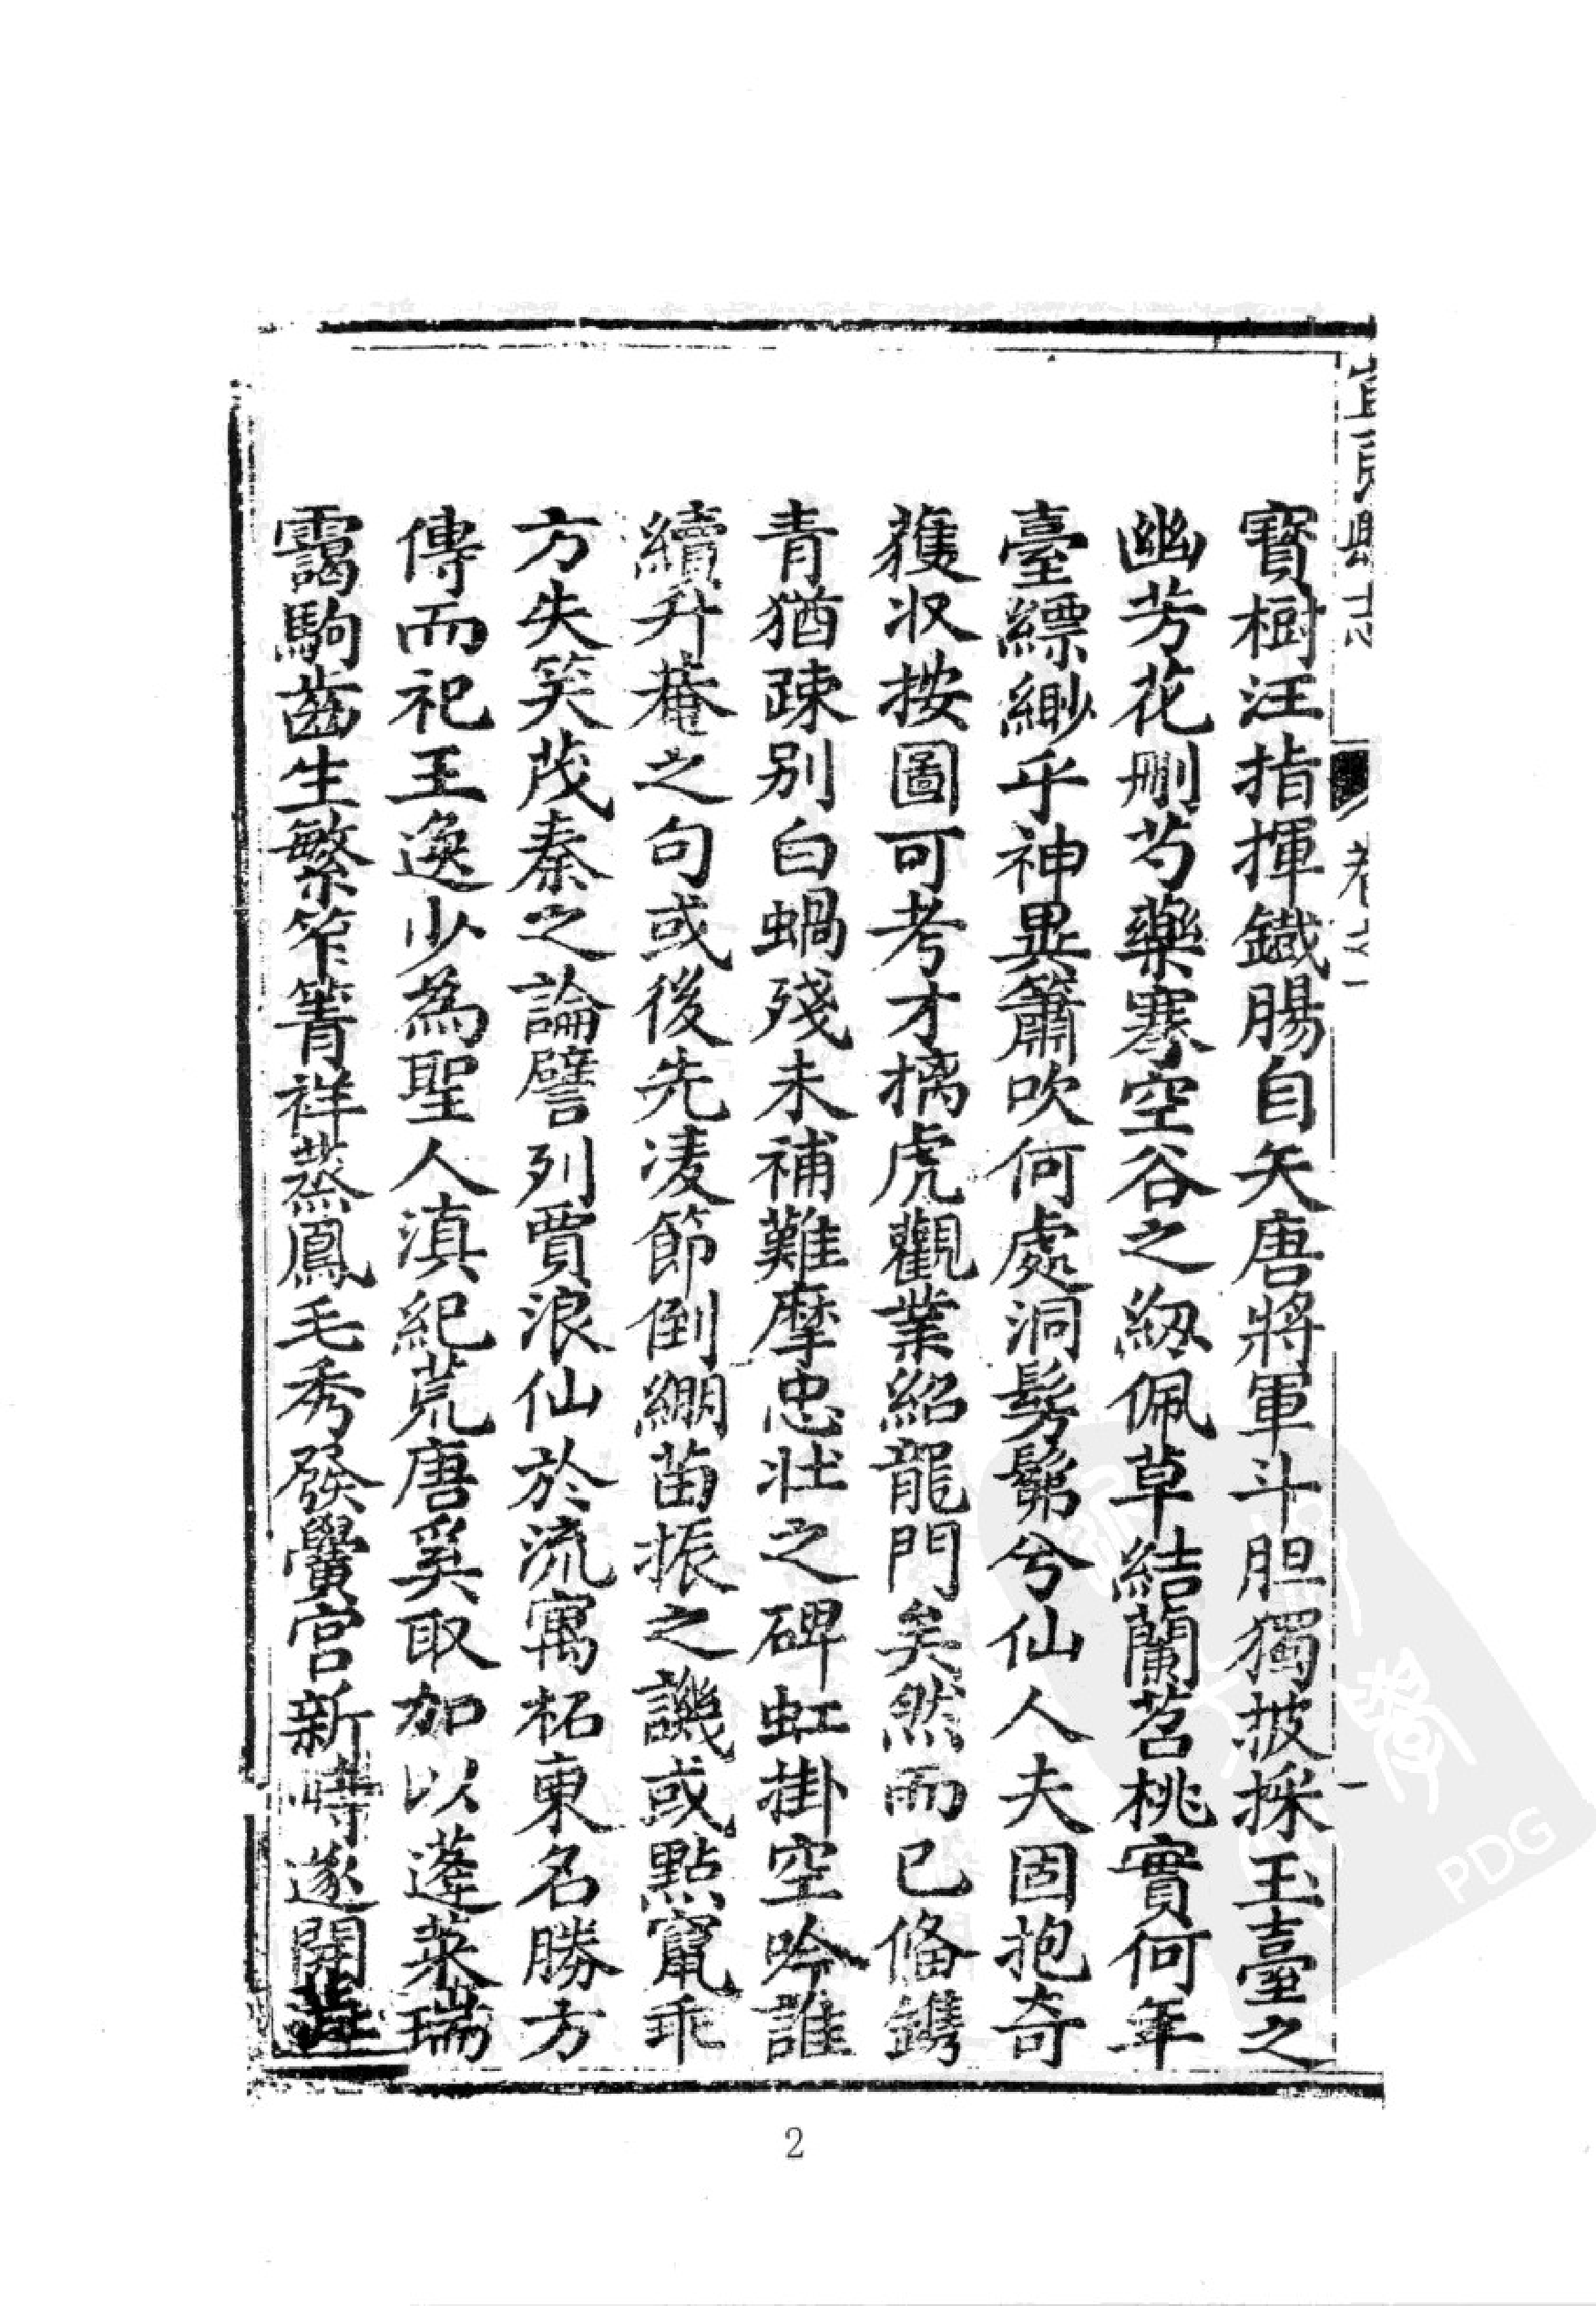 寳樹汪指揮鐡腸自矢唐將軍斗胆獨披採玉臺之
幽芳花刪芍藥搴空谷之紉佩草結蘭苕桃實何年
臺縹緲乎神異簫吹何處洞髣髴兮仙人夫固抱奇
獲収按圖可考才摛虎觀業紹龍門矣然而已俻鐫
青猶疎别白蝸殘未補難摩忠壯之碑虹掛空吟誰
續升菴之句或後先凌節倒綳苗振之譏或點竄乖
方失笑茂秦之論譬列賈浪仙於流寓柘東名勝方
傳而祀王逸少為聖人滇紀荒唐奚取加以蓬萊瑞
靄駒齒生繁笮箐祥蒸鳳毛秀發黌宮新峙遂開
志
2
PDG